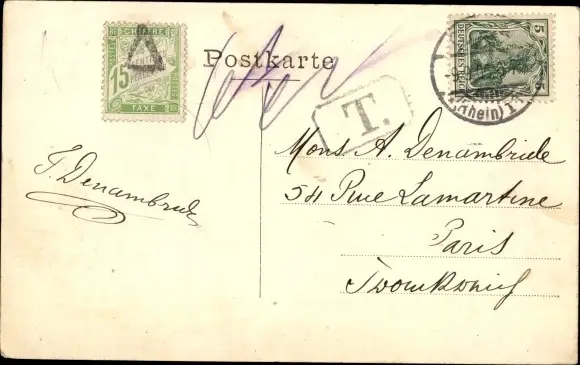 CHIFFRE
15
TAXE
Postkarte
5
5
(Rhein) 1
T.
Mons A. Denambride
54 Rue Lamartine
Paris
Frankreich
J. Denambride